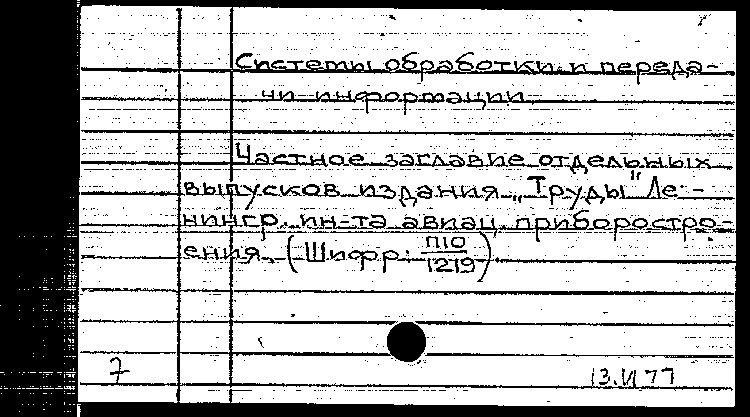 Системы обработки и переда-
чи информации.
Частное заглавие отдельных
выпусков издания „Труды" Ле-
нингр. ин-та авиац. приборостро-
ения. (Шифр: П10/1219).
7
13.VI 77